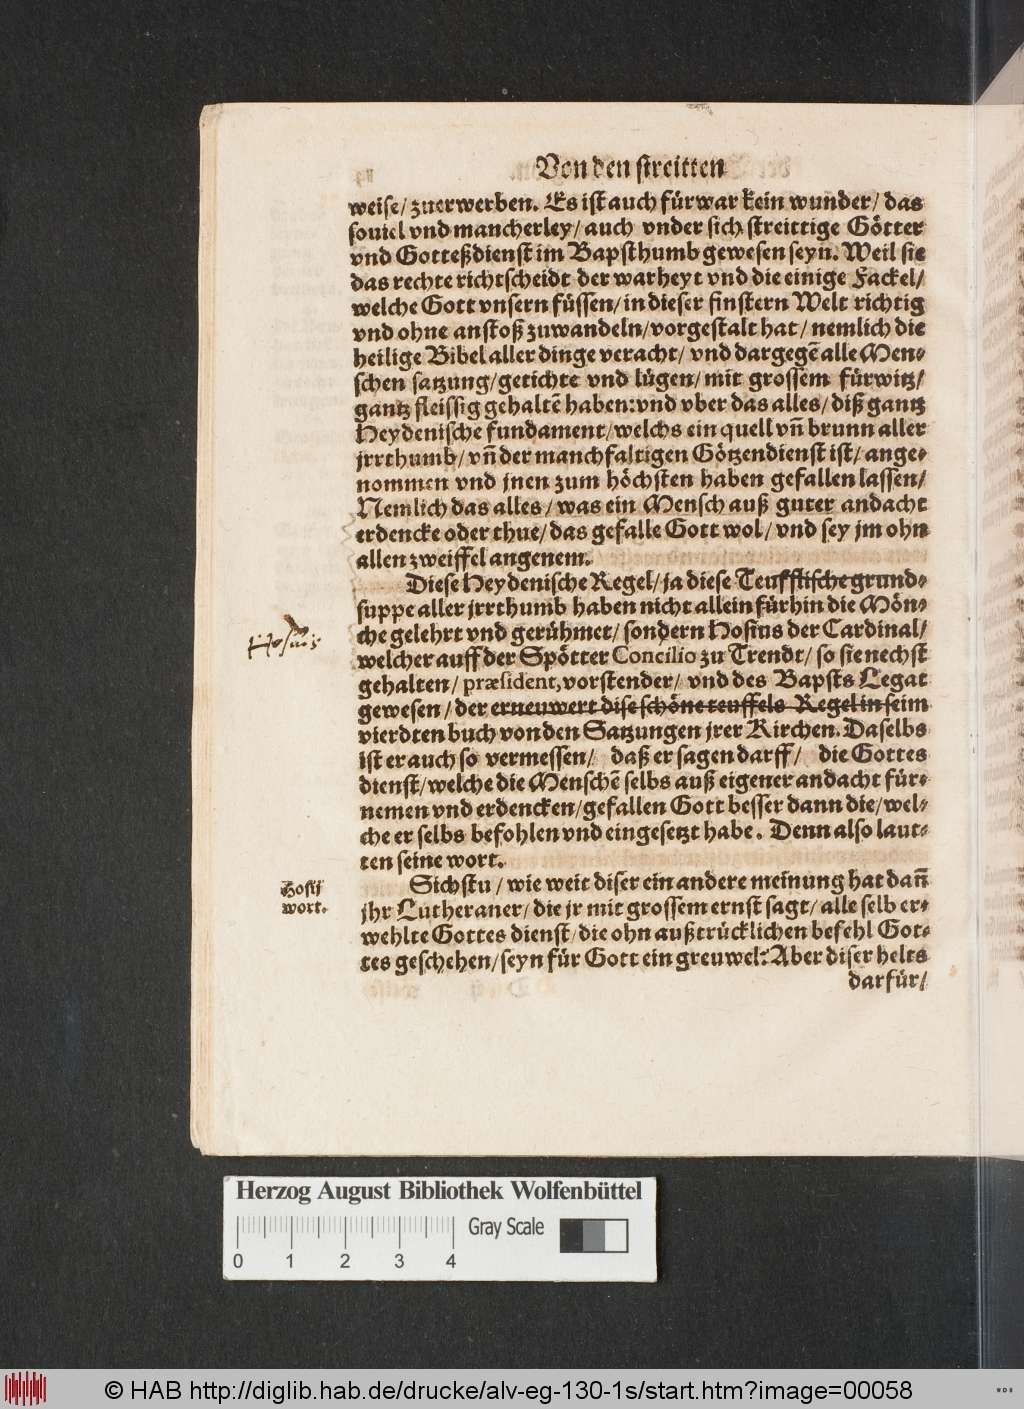 Von den streitten
weise/ zuerwerben. Es ist auch fürwar kein wunder/ das
souiel vnd mancherley/ auch vnder sich streittige Götter
vnd Gotteßdienst im Bapsthumb gewesen seyn. Weil sie
das rechte richtscheidt der warheyt vnd die einige Fackel/
welche Gott vnsern füssen/ in dieser finstern Welt richtig
vnd ohne anstoß zuwandeln/ vorgestalt hat/ nemlich die
heilige Bibel aller dinge veracht/ vnd dargegē alle Men-
schen satzung/ getichte vnd lügen/ mit grossem fürwitz/
gantz fleissig gehaltē haben: vnd vber das alles/ diß gantz
Heydenische fundament/ welchs ein quell vn̄ brunn aller
jrrthumb/ vn̄ der manchfaltigen Götzendienst ist/ ange-
nommen vnd jnen zum höchsten haben gefallen lassen/
Nemlich das alles/ was ein Mensch auß guter andacht
erdencke oder thue/ das gefalle Gott wol/ vnd sey jm ohn
allen zweiffel angenem.
Diese Heydenische Regel/ ja diese Teufflische grund-
suppe aller jrrthumb haben nicht allein fürhin die Mön-
che gelehrt vnd gerühmet/ sondern Hosius der Cardinal/
Hosius
welcher auff der Spötter Concilio zu Trendt/ so sie nechst
gehalten/ præsident, vorstender/ vnd des Bapsts Legat
gewesen/ der erneuwert dise schöne teuffels Regel in seim
vierdten buch von den Satzungen jrer Kirchen. Daselbs
ist er auch so vermessen/ daß er sagen darff/ die Gottes
dienst/ welche die Menschē selbs auß eigener andacht für-
nemen vnd erdencken/ gefallen Gott besser dann die/ wel-
che er selbs befohlen vnd eingesetzt habe. Denn also laut-
ten seine wort.
Hosij
wort.
Sichstu/ wie weit diser ein andere meinung hat dan̄
jhr Lutheraner/ die jr mit grossem ernst sagt/ alle selb er-
wehlte Gottes dienst/ die ohn außtrücklichen befehl Got-
tes geschehen/ seyn für Gott ein greuwel: Aber diser helts
darfür/
Herzog August Bibliothek Wolfenbüttel
Gray Scale
0 1 2 3 4
© HAB http://diglib.hab.de/drucke/alv-eg-130-1s/start.htm?image=00058